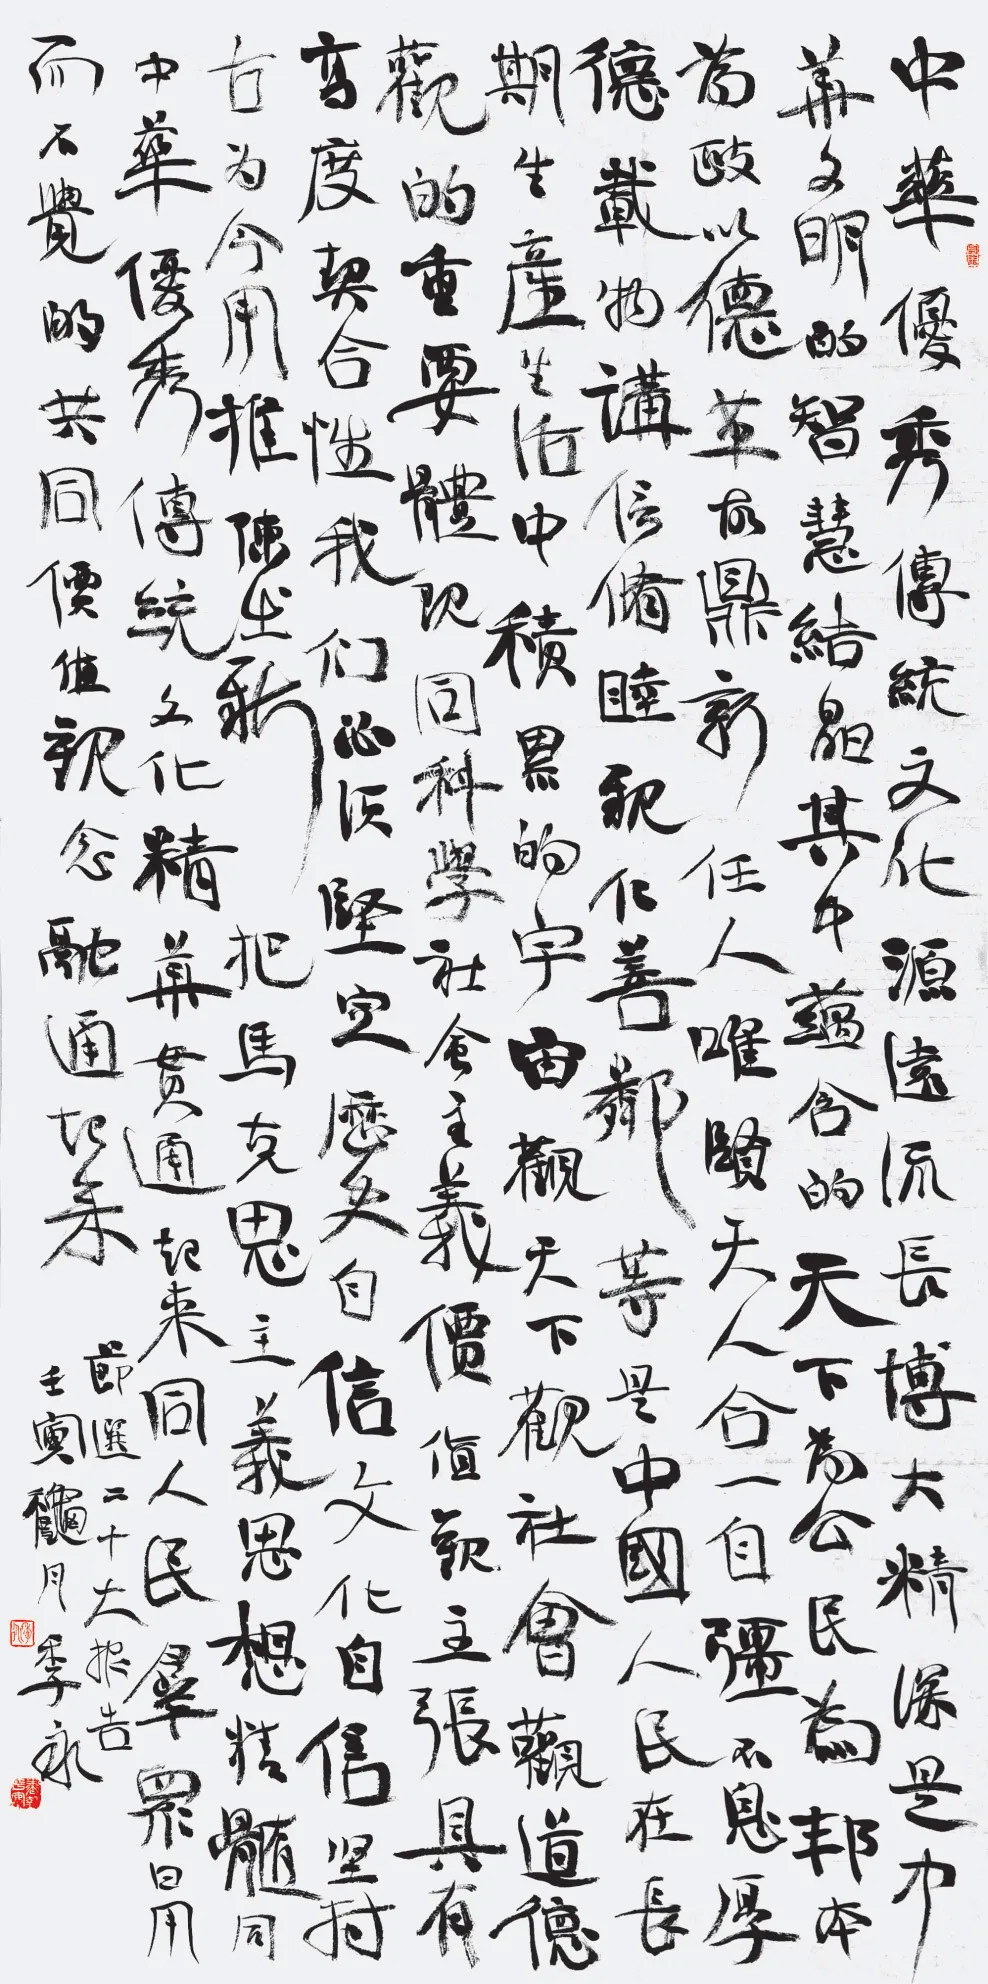 中華優秀傳統文化源遠流長博大精深是中
華文明的智慧結晶其中蘊含的天下為公民為邦本
為政以德革故鼎新任人唯賢天人合一自彊不息厚
德載物講信脩睦親仁善鄰等是中國人民在長
期生產生活中積累的宇宙觀天下觀社會觀道德
觀的重要體現同科學社會主義價值觀主張具有
高度契合性我们必须堅定歷史自信文化自信坚持
古为今用推陳出新把馬克思主義思想精髓同
中華優秀傳統文化精華贯通起来同人民羣眾日用
而不覺的共同價值观念融通起来
節選二十大报告
壬寅龝月季永